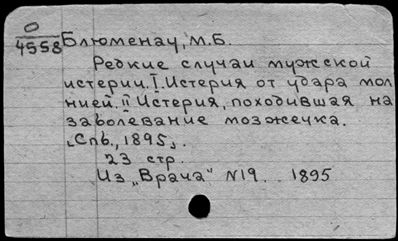 О
4558 Блюменау, М.Б.
Редкие случаи мужской
истерии. I. Истерия от удара мол
нией. II Истерия, походившая на
заболевание мозжечка.
"Спб., 1895".
23 стр.
Из „Врача" N19. 1895